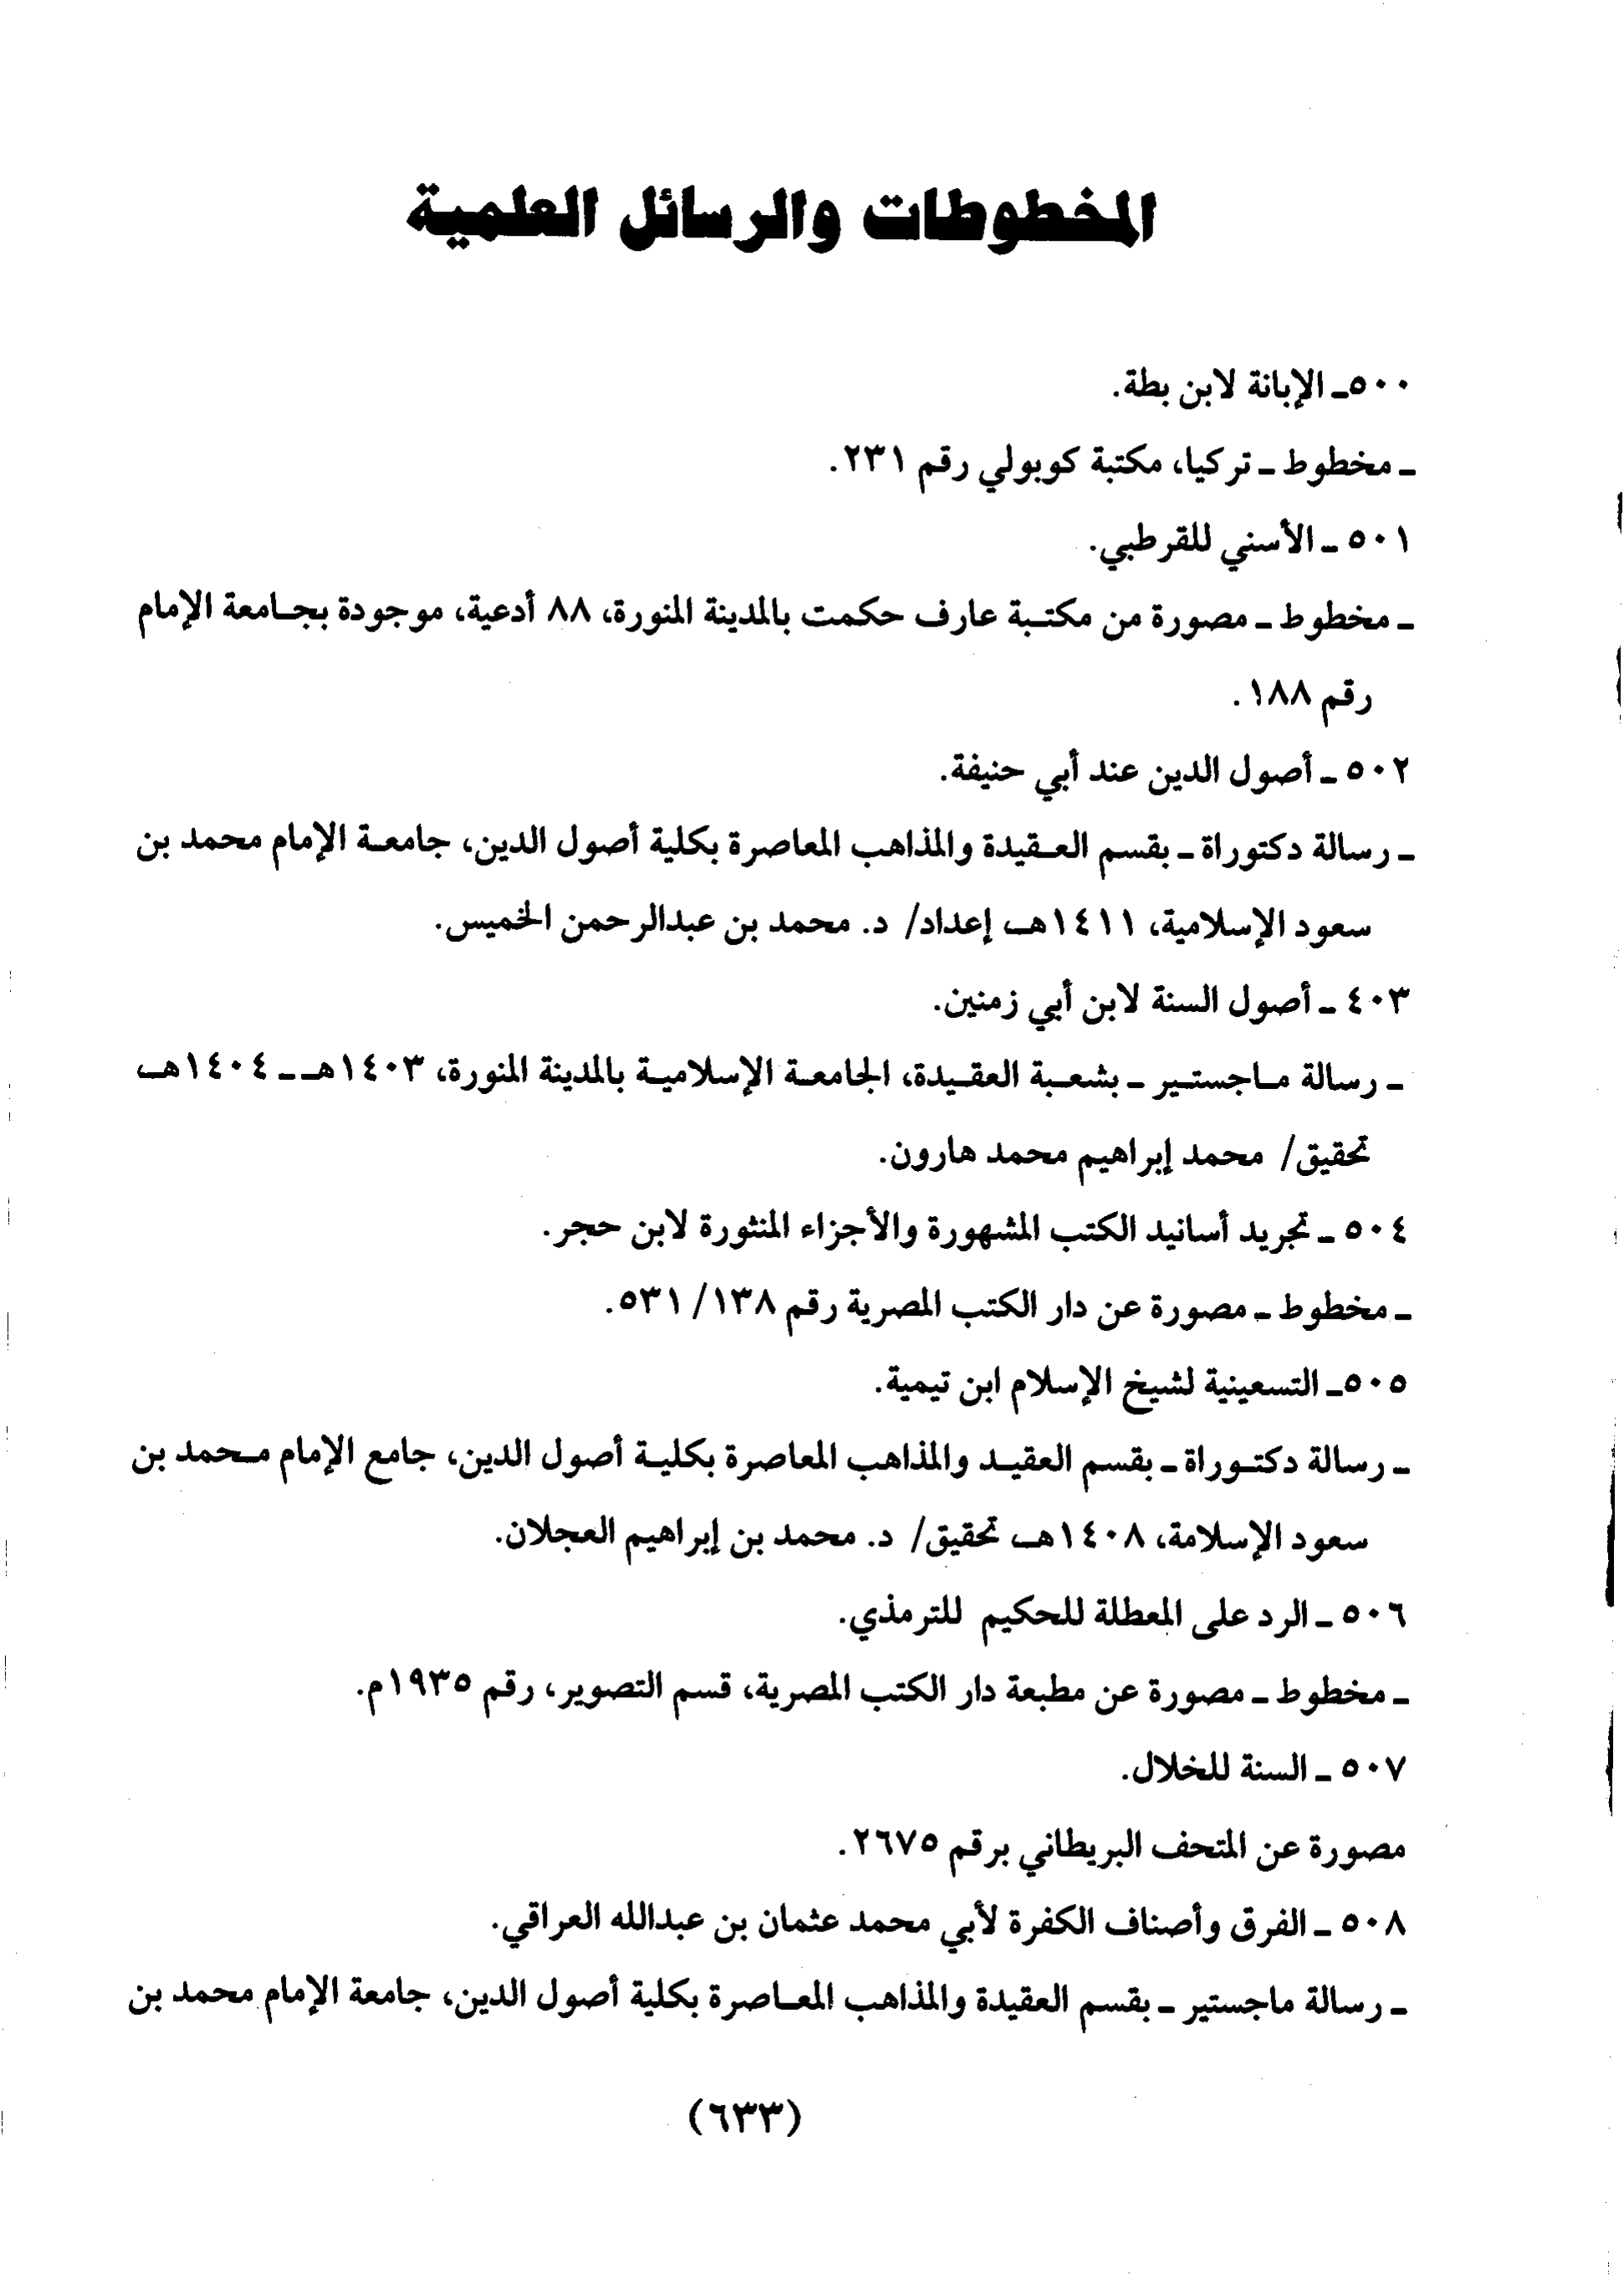 المخطوطات والرسائل العلمية
٥٠٠ـ الإبانة لابن بطة.
ـ مخطوط ـ تركيا، مكتبة كوبولي رقم ٢٣١.
٥٠١ ـ الأسني للقرطبي.
ـ مخطوط ـ مصورة من مكتبة عارف حكمت بالمدينة المنورة، ٨٨ أدعية، موجودة بجامعة الإمام
رقم ١٨٨.
٥٠٢ ـ أصول الدين عند أبي حنيفة.
ـ رسالة دكتوراة ـ بقسم العقيدة والمذاهب المعاصرة بكلية أصول الدين، جامعة الإمام محمد بن
سعود الإسلامية، ١٤١١هـ إعداد/ د. محمد بن عبدالرحمن الخميس.
٤٠٣ ـ أصول السنة لابن أبي زمنين.
ـ رسالة ماجستير ـ بشعبة العقيدة، الجامعة الإسلامية بالمدينة المنورة، ١٤٠٣هـ ـ ١٤٠٤هـ
تحقيق/ محمد إبراهيم محمد هارون.
٥٠٤ ـ تجريد أسانيد الكتب المشهورة والأجزاء المنثورة لابن حجر.
ـ مخطوط ـ مصورة عن دار الكتب المصرية رقم ١٣٨/ ٥٣١.
٥٠٥ـ التسعينية لشيخ الإسلام ابن تيمية.
ـ رسالة دكتوراة ـ بقسم العقيد والمذاهب المعاصرة بكلية أصول الدين، جامع الإمام محمد بن
سعود الإسلامة، ١٤٠٨هـ تحقيق/ د. محمد بن إبراهيم العجلان.
٥٠٦ ـ الرد على المعطلة للحكيم للترمذي.
ـ مخطوط ـ مصورة عن مطبعة دار الكتب المصرية، قسم التصوير، رقم ١٩٣٥م.
٥٠٧ ـ السنة للخلال.
مصورة عن المتحف البريطاني برقم ٢٦٧٥.
٥٠٨ ـ الفرق وأصناف الكفرة لأبي محمد عثمان بن عبدالله العراقي.
ـ رسالة ماجستير ـ بقسم العقيدة والمذاهب المعاصرة بكلية أصول الدين، جامعة الإمام محمد بن
(٦٣٣)